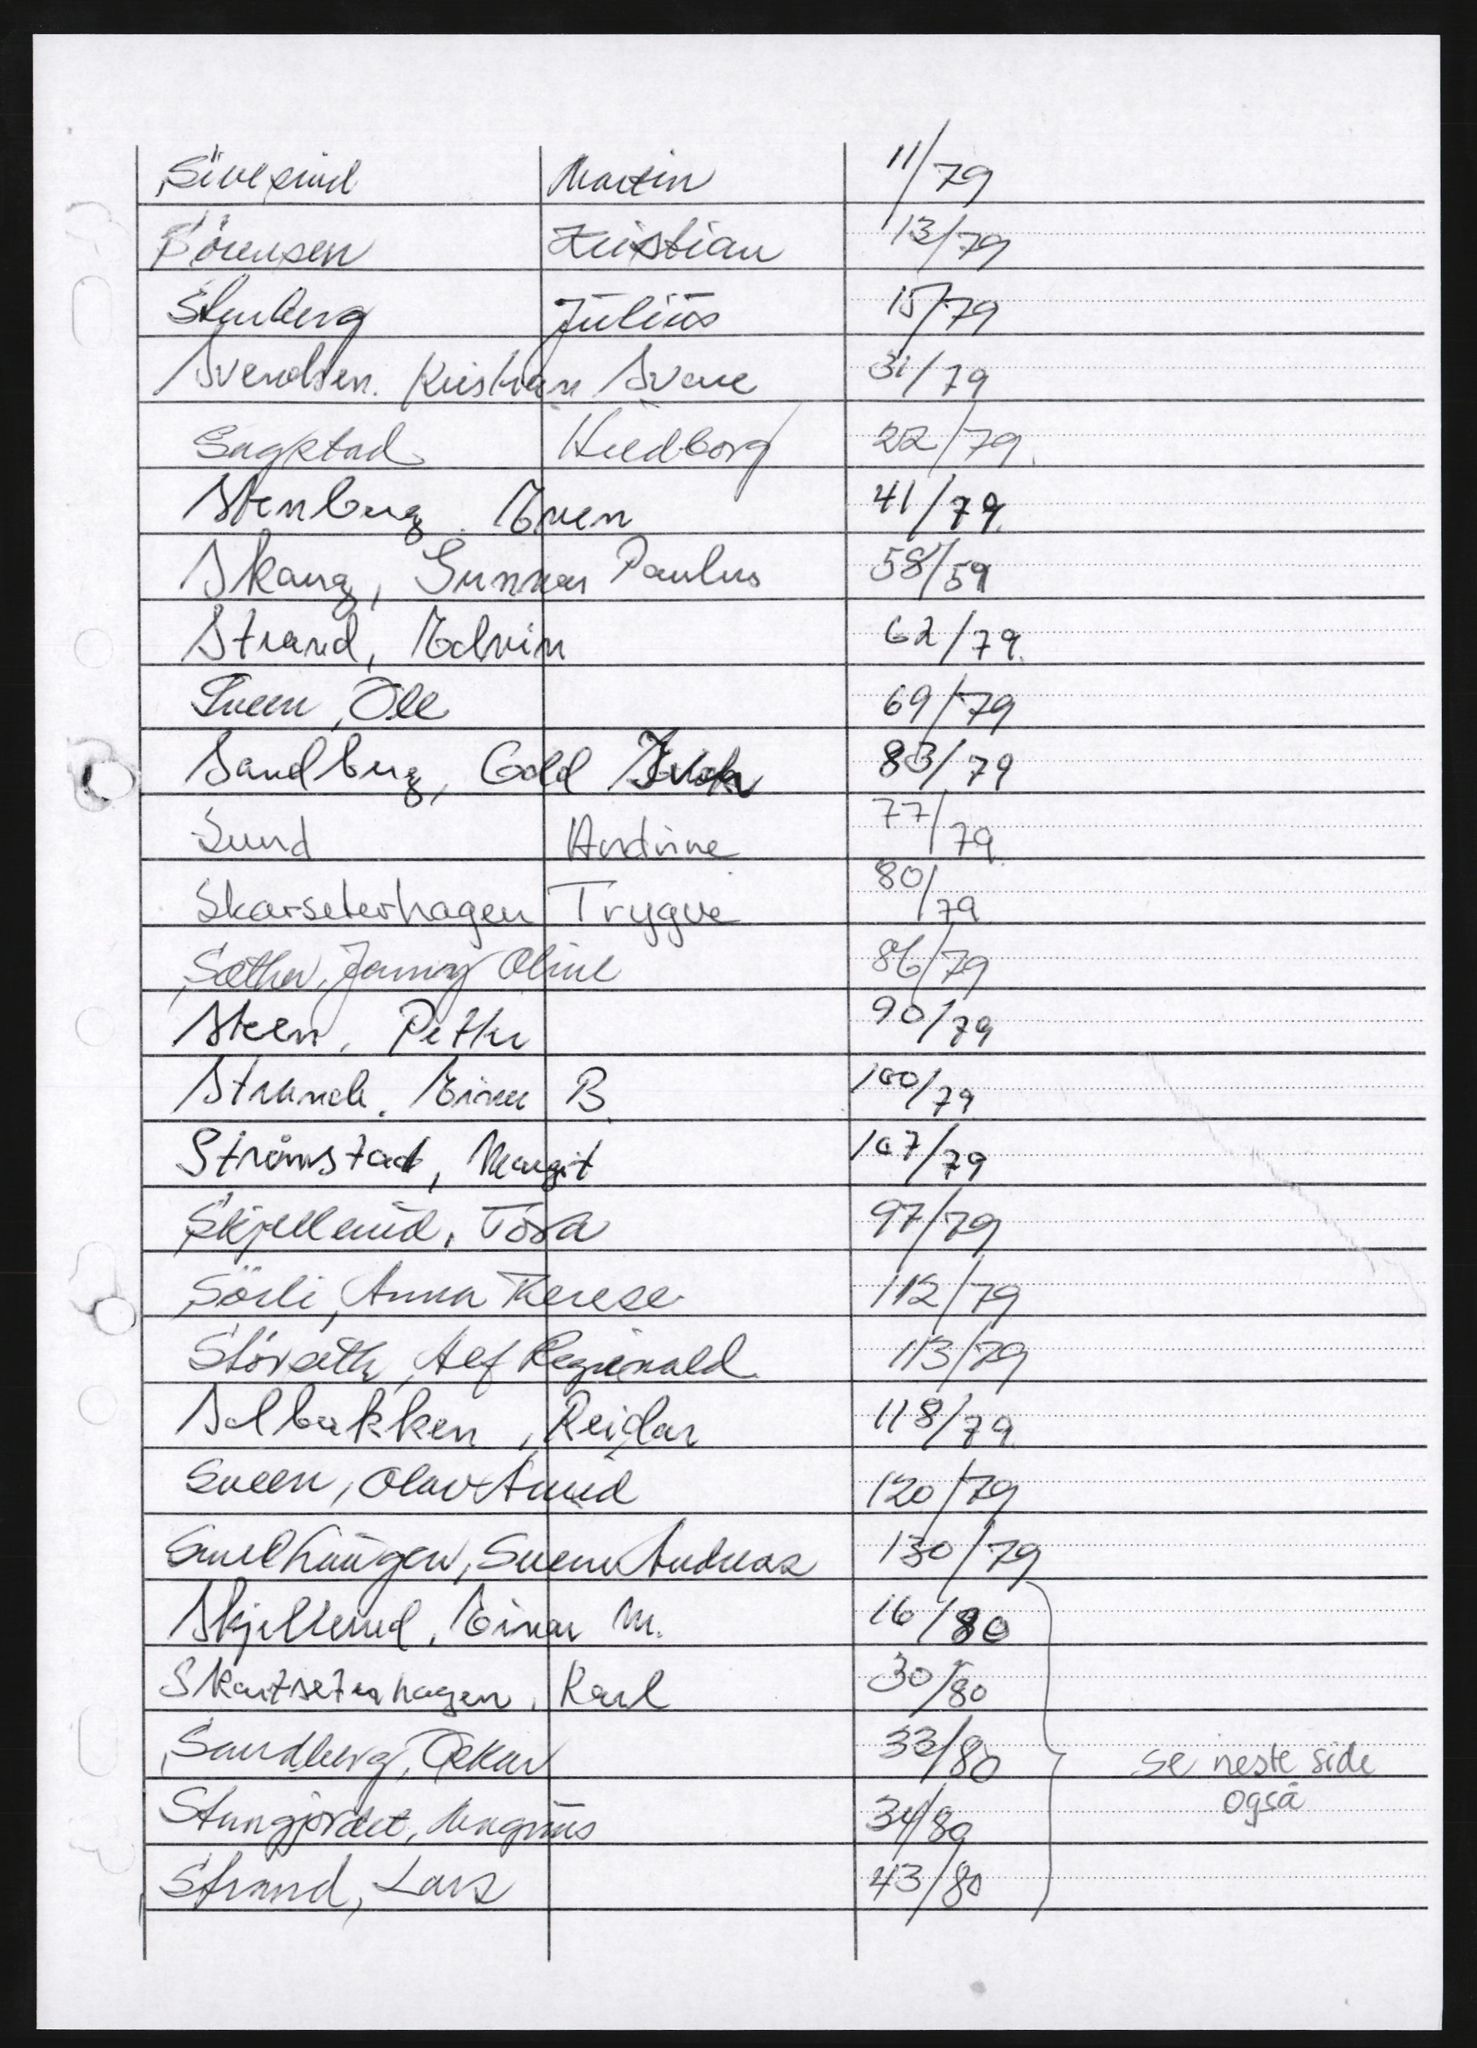 Martin 11/79
Sörensen Kristian 13/79
Stenberg Julius 15/79
Svendsen. Kristian Svane 31/79
Sagstad Hildborg 22/79.
Stenberg. Even 41/79.
Skaug, Gunnar Paulus 58/59
Strand, Edvin 62/79.
Sveen, Ole 69/79
Sandberg, Gold 83/79
Sund Andrine 77/79.
Skarseterhagen Trygve 80/79
Sæther, Jenny Oline 86/79
Steen, Petter 90/79
Strande. Einar B. 100/79
Strømstad, Margit 107/79
Skjellerud, Tora 97/79
Sörli, Anna Therese 112/79
Störseth, Alf Reginald 113/79
Solbakken, Reidar 118/79.
Sveen, Olav Arvid 120/79
Smelhaugen, Svenn Andreas 130/79
Skjellerud, Einar M. 16/80
Skartseterhagen. Karl 30/80
Sandberg, Oskar 33/80
Stengjordet, Magnus 34/80
Strand, Lars 43/80
se neste side
også